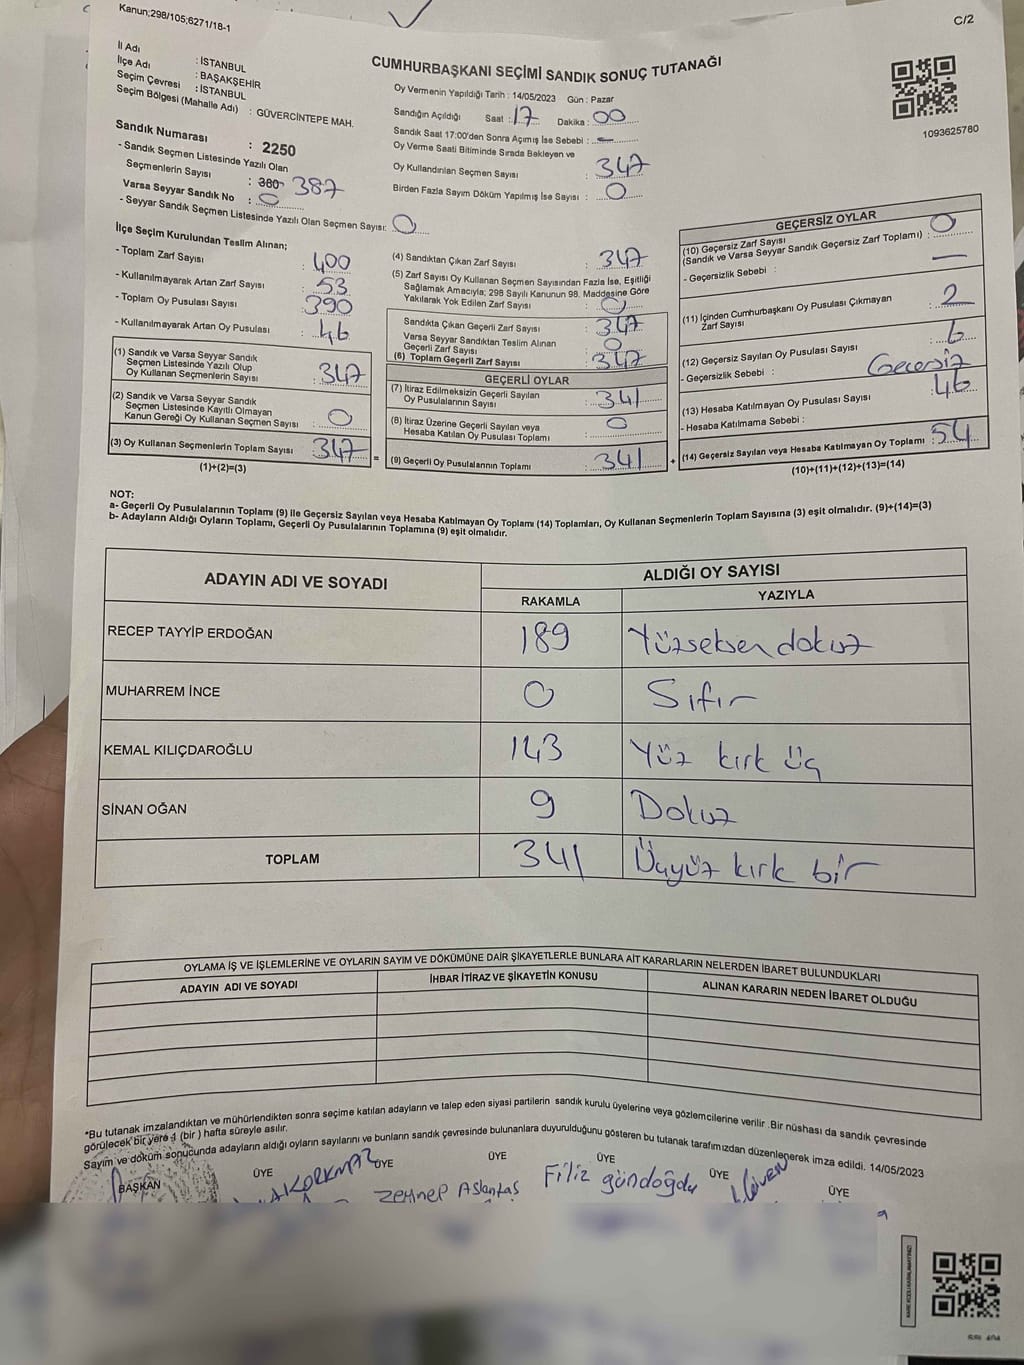 Kanun;298/105;6271/18-1
C/2
İl Adı : İSTANBUL
İlçe Adı : BAŞAKŞEHİR
Seçim Çevresi : İSTANBUL
Seçim Bölgesi (Mahalle Adı) : GÜVERCİNTEPE MAH.
CUMHURBAŞKANI SEÇİMİ SANDIK SONUÇ TUTANAĞI
Oy Vermenin Yapıldığı Tarih : 14/05/2023 Gün : Pazar
Sandığın Açıldığı Saat : 17 Dakika : 00
Sandık Saat 17:00'den Sonra Açılmış İse Sebebi : -
Oy Verme Saati Bitiminde Sırada Bekleyen ve
Oy Kullandırılan Seçmen Sayısı : 347
Birden Fazla Sayım Döküm Yapılmış İse Sayısı : 0
1093625780
Sandık Numarası : 2250
- Sandık Seçmen Listesinde Yazılı Olan
Seçmenlerin Sayısı : 380 387
Varsa Seyyar Sandık No : 0
- Seyyar Sandık Seçmen Listesinde Yazılı Olan Seçmen Sayısı: 0
İlçe Seçim Kurulundan Teslim Alınan;
- Toplam Zarf Sayısı : 400
- Kullanılmayarak Artan Zarf Sayısı : 53
- Toplam Oy Pusulası Sayısı : 390
- Kullanılmayarak Artan Oy Pusulası : 46
(1) Sandık ve Varsa Seyyar Sandık
Seçmen Listesinde Yazılı Olup
Oy Kullanan Seçmenlerin Sayısı : 347
(2) Sandık ve Varsa Seyyar Sandık
Seçmen Listesinde Kayıtlı Olmayan
Kanun Gereği Oy Kullanan Seçmen Sayısı : 0
(3) Oy Kullanan Seçmenlerin Toplam Sayısı : 347
(1)+(2)=(3)
=
(4) Sandıktan Çıkan Zarf Sayısı : 347
(5) Zarf Sayısı Oy Kullanan Seçmen Sayısından Fazla İse, Eşitliği
Sağlamak Amacıyla; 298 Sayılı Kanunun 98. Maddesine Göre
Yakılarak Yok Edilen Zarf Sayısı : 0
Sandıkta Çıkan Geçerli Zarf Sayısı : 347
Varsa Seyyar Sandıktan Teslim Alınan
Geçerli Zarf Sayısı : 0
(6) Toplam Geçerli Zarf Sayısı : 347
GEÇERLİ OYLAR
(7) İtiraz Edilmeksizin Geçerli Sayılan
Oy Pusulalarının Sayısı : 341
(8) İtiraz Üzerine Geçerli Sayılan veya
Hesaba Katılan Oy Pusulası Toplamı : 0
(9) Geçerli Oy Pusulalarının Toplamı : 341
+
GEÇERSİZ OYLAR
(10) Geçersiz Zarf Sayısı
(Sandık ve Varsa Seyyar Sandık Geçersiz Zarf Toplamı) : 0
- Geçersizlik Sebebi : -
(11) İçinden Cumhurbaşkanı Oy Pusulası Çıkmayan
Zarf Sayısı : 2
(12) Geçersiz Sayılan Oy Pusulası Sayısı : 6
- Geçersizlik Sebebi : Geçersiz
(13) Hesaba Katılmayan Oy Pusulası Sayısı : 46
- Hesaba Katılmama Sebebi :
(14) Geçersiz Sayılan veya Hesaba Katılmayan Oy Toplamı : 54
(10)+(11)+(12)+(13)=(14)
NOT:
a- Geçerli Oy Pusulalarının Toplamı (9) ile Geçersiz Sayılan veya Hesaba Katılmayan Oy Toplamı (14) Toplamları, Oy Kullanan Seçmenlerin Toplam Sayısına (3) eşit olmalıdır. (9)+(14)=(3)
b- Adayların Aldığı Oyların Toplamı, Geçerli Oy Pusulalarının Toplamına (9) eşit olmalıdır.
ADAYIN ADI VE SOYADI ALDIĞI OY SAYISI
RAKAMLA YAZIYLA
RECEP TAYYİP ERDOĞAN 189 Yüzseksen dokuz
MUHARREM İNCE 0 Sıfır
KEMAL KILIÇDAROĞLU 143 Yüz kırk üç
SİNAN OĞAN 9 Dokuz
TOPLAM 341 Üçyüz kırk bir
OYLAMA İŞ VE İŞLEMLERİNE VE OYLARIN SAYIM VE DÖKÜMÜNE DAİR ŞİKAYETLERLE BUNLARA AİT KARARLARIN NELERDEN İBARET BULUNDUKLARI
ADAYIN ADI VE SOYADI İHBAR İTİRAZ VE ŞİKAYETİN KONUSU ALINAN KARARIN NEDEN İBARET OLDUĞU
*Bu tutanak imzalandıktan ve mühürlendikten sonra seçime katılan adayların ve talep eden siyasi partilerin sandık kurulu üyelerine veya gözlemcilerine verilir .Bir nüshası da sandık çevresinde
görülecek bir yere 1 (bir ) hafta süreyle asılır.
Sayım ve döküm sonucunda adayların aldığı oyların sayılarını ve bunların sandık çevresinde bulunanlara duyurulduğunu gösteren bu tutanak tarafımızdan düzenlenerek imza edildi. 14/05/2023
BAŞKAN ÜYE ÜYE ÜYE ÜYE ÜYE ÜYE
KORKMAZ Zeynep Aslantaş Filiz gündoğdu GÜVEN